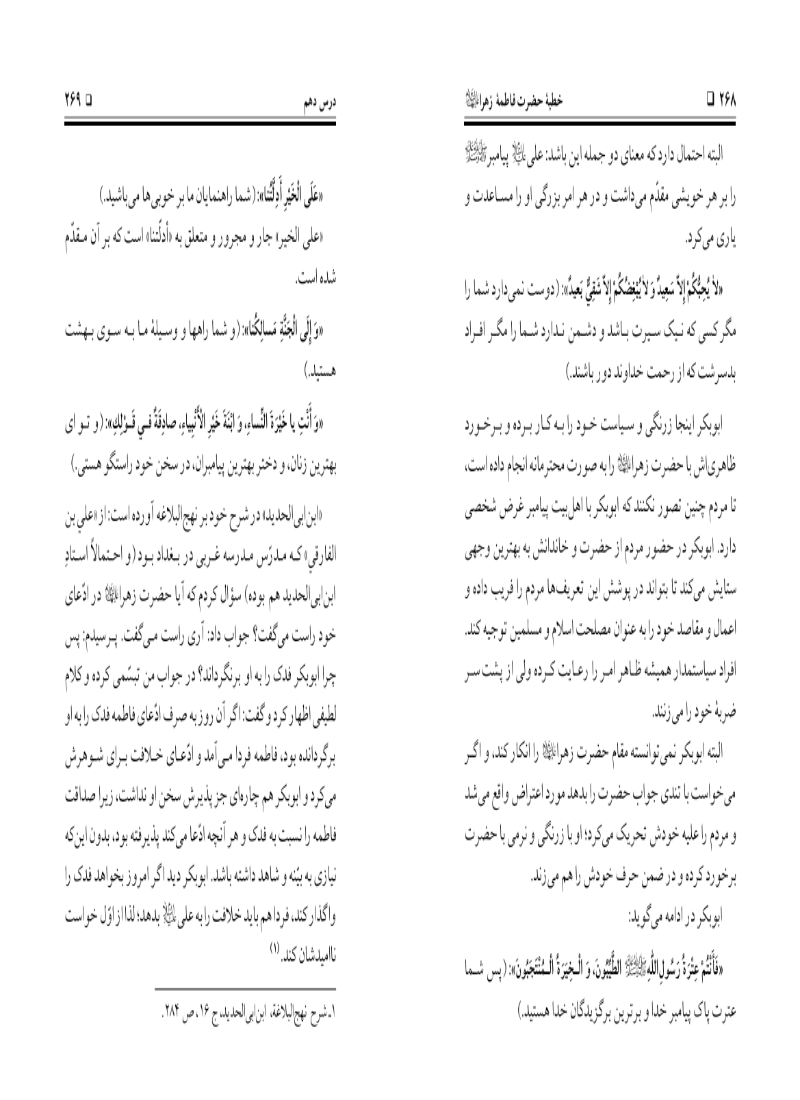 ۲۶۸ ❑ خطبهٔ حضرت فاطمهٔ زهرا علیها‌السلام
البته احتمال دارد که معنای دو جمله این باشد: علی علیه‌السلام پیامبر صلی‌الله‌علیه‌و‌آله
را بر هر خویشی مقدّم می‌داشت و در هر امر بزرگی او را مساعدت و
یاری می‌کرد.
«لاٰ یُحِبُّکُمْ إِلاَّ سَعِیدٌ وَ لاٰ یُبْغِضُکُمْ إِلاَّ شَقِیٌّ بَعیدٌ»: (دوست نمی‌دارد شما را
مگر کسی که نیک سیرت باشد و دشمن ندارد شما را مگر افراد
بدسرشت که از رحمت خداوند دور باشند.)
ابوبکر اینجا زرنگی و سیاست خود را به کار برده و برخورد
ظاهری‌اش با حضرت زهرا علیها‌السلام را به صورت محترمانه انجام داده است،
تا مردم چنین تصور نکنند که ابوبکر با اهل‌بیت پیامبر غرض شخصی
دارد. ابوبکر در حضور مردم از حضرت و خاندانش به بهترین وجهی
ستایش می‌کند تا بتواند در پوشش این تعریف‌ها مردم را فریب داده و
اعمال و مقاصد خود را به عنوان مصلحت اسلام و مسلمین توجیه کند.
افراد سیاستمدار همیشه ظاهر امر را رعایت کرده ولی از پشت سر
ضربهٔ خود را می‌زنند.
البته ابوبکر نمی‌توانسته مقام حضرت زهرا علیها‌السلام را انکار کند، و اگر
می‌خواست با تندی جواب حضرت را بدهد مورد اعتراض واقع می‌شد
و مردم را علیه خودش تحریک می‌کرد؛ او با زرنگی و نرمی با حضرت
برخورد کرده و در ضمن حرف خودش را هم می‌زند.
ابوبکر در ادامه می‌گوید:
«فَأَنْتُمْ عِتْرَةُ رَسُولِ اللّٰهِ صلی‌الله‌علیه‌و‌آله الطَّیِّبُونَ، وَ الْخِیَرَةُ الْمُنْتَجَبُونَ»: (پس شما
عترت پاک پیامبر خدا و برترین برگزیدگان خدا هستید.)
درس دهم ❑ ۲۶۹
«عَلَی الْخَیْرِ أَدِلَّتُنا»: (شما راهنمایان ما بر خوبی‌ها می‌باشید.)
«علی الخیر» جار و مجرور و متعلق به «أدلّتنا» است که بر آن مقدّم
شده است.
«وَ إِلَی الْجَنَّةِ مَسالِکُنا»: (و شما راهها و وسیلهٔ ما به سوی بهشت
هستید.)
«وَ أَنْتِ یا خَیْرَةَ النِّساءِ، وَ ابْنَةَ خَیْرِ الْأَنْبِیاءِ، صادِقَةٌ فی قَوْلِكِ»: (و تو ای
بهترین زنان، و دختر بهترین پیامبران، در سخن خود راستگو هستی.)
«ابن‌ابی‌الحدید» در شرح خود بر نهج‌البلاغه آورده است: از «علي بن
الفارقي» که مدرّس مدرسه غربی در بغداد بود (و احتمالاً استادِ
ابن‌ابی‌الحدید هم بوده) سؤال کردم که آیا حضرت زهرا علیها‌السلام در ادّعای
خود راست می‌گفت؟ جواب داد: آری راست می‌گفت. پرسیدم: پس
چرا ابوبکر فدک را به او برنگرداند؟ در جواب من تبسّمی کرده و کلام
لطیفی اظهار کرد و گفت: اگر آن روز به صرف ادّعای فاطمه فدک را به او
برگردانده بود، فاطمه فردا می‌آمد و ادّعای خلافت برای شوهرش
می‌کرد و ابوبکر هم چاره‌ای جز پذیرش سخن او نداشت، زیرا صداقت
فاطمه را نسبت به فدک و هر آنچه ادّعا می‌کند پذیرفته بود، بدون این‌که
نیازی به بیّنه و شاهد داشته باشد. ابوبکر دید اگر امروز بخواهد فدک را
واگذار کند، فردا هم باید خلافت را به علی علیه‌السلام بدهد؛ لذا از اوّل خواست
ناامیدشان کند.(۱)
۱ـ شرح نهج‌البلاغة، ابن‌ابی‌الحدید، ج ۱۶، ص ۲۸۴.